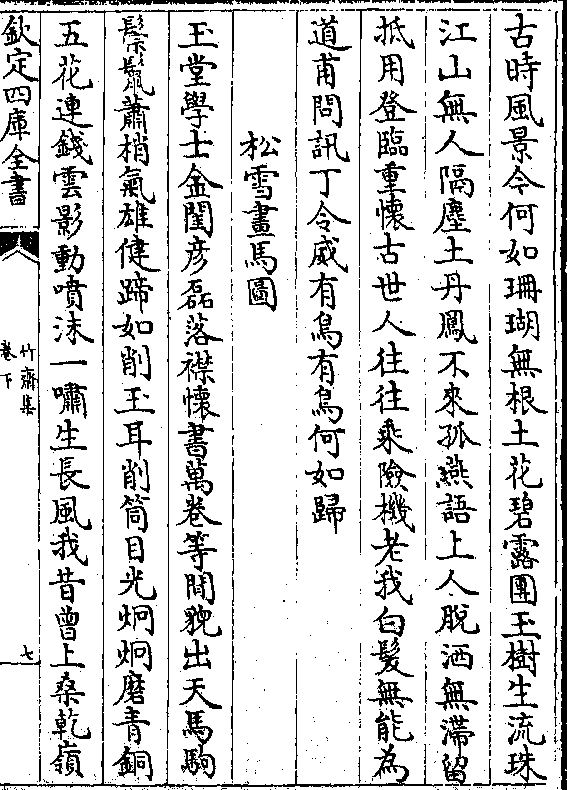 古時風景今何如珊瑚無根土花碧露團玉樹生流珠
江山無人隔塵土丹鳳不來孤燕語上人脫洒無滯留
抵用登臨重懷古世人往往乘險機老我白髮無能為
道甫問訊丁令威有鳥有鳥何如歸
松雪畫馬圖
玉堂學士金閨彥磊落襟懷書萬卷等閒貌出天馬駒
鬃鬛蕭梢氣雄健蹄如削玉耳削筒目光炯炯磨青銅
五花連錢雲影動噴沫一嘯生長風我昔曾上桑乾嶺
欽定四庫全書
竹齋集
卷下
七